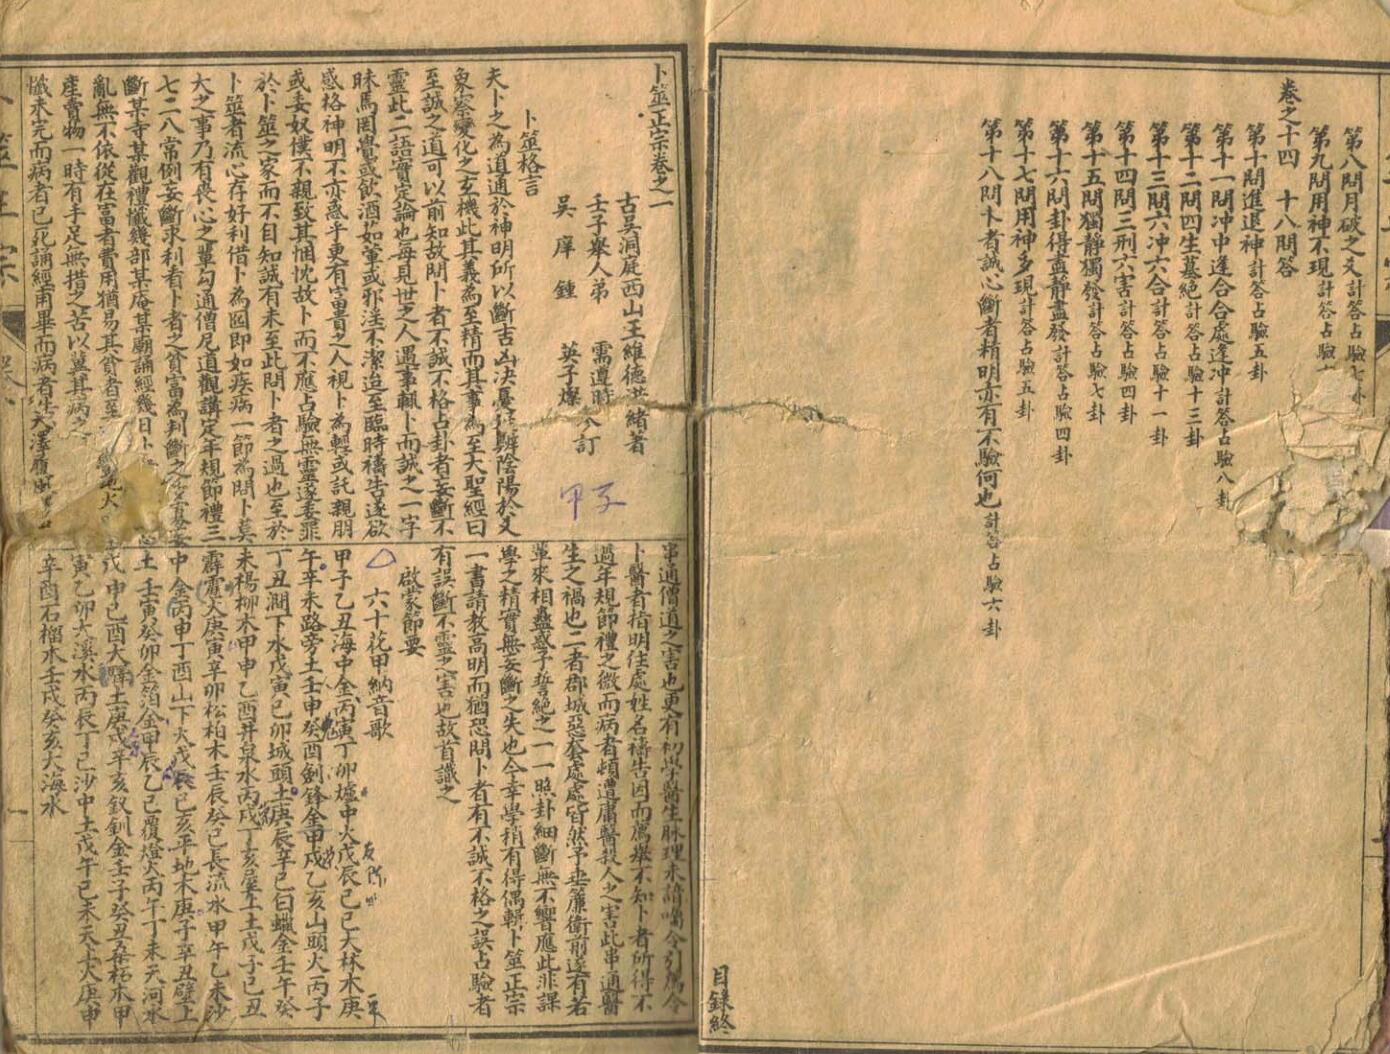 第八問月破之爻計答占驗七卦
第九問用神不現計答占驗
卷之十四　十八問答
第十問進退神計答占驗五卦
第十一問冲中逢合合處逢冲計答占驗八卦
第十二問四生墓絶計答占驗十三卦
第十三問六冲六合計答占驗十一卦
第十四問三刑六害計答占驗四卦
第十五問獨靜獨發計答占驗七卦
第十六問卦得盡靜盡發計答占驗四卦
第十七問用神多現計答占驗五卦
第十八問卜者誠心斷者精明亦有不驗何也計答占驗六卦
目錄終
卜筮正宗卷之一
古吳洞庭西山王維德洪緒著
壬子舉人弟　需遵時
吳庠　鍾　英子燦　仝訂
甲子
卜筮格言
夫卜之為道通於神明所以斷吉凶決憂疑辨陰陽於爻
象察變化之玄機此其義為至精而其事為至大聖經曰
至誠之道可以前知故問卜者不誠不格占卦者妄斷不
靈此二語實定論也每見世之人遇事輒卜而誠之一字
昧焉罔覺或飲酒茹葷或邪淫不潔迨至臨時禱告遂欲
感格神明不亦惑乎更有富貴之人視卜為輕或託親朋
或妄奴僕不親致其悃忱故卜而不應占驗無靈遂委罪
於卜筮之家而不自知誠有未至此問卜者之過也至於
卜筮者流心存好利借卜為囮即如疾病一節為問卜莫
大之事乃有喪心之輩勾通僧尼道觀講定年規節禮三
七二八常例妄斷求利看卜者之貧富為判斷之
斷某寺某觀禮懺幾部某庵某廟誦經幾日卜
亂無不依從在富者費用猶易其貧者至
產賣物一時有手足無措之苦以冀其病之
懺未完而病者已死誦經甫畢而病者
串通僧道之害也更有初學醫生脉理未諳囑令引薦令
卜醫者指明住處姓名禱告因而薦舉不知卜者所得不
過年規節禮之微而病者頓遭庸醫殺人之害此串通醫
生之禍也二者郡城惡套處處皆然予垂簾衛前遂有若
輩來相蠱惑予誓絶之一一照卦細斷無不響應此非課
學之精實無妄斷之失也今幸學稍有得偶輯卜筮正宗
一書請教高明而猶恐問卜者有不誠不格之誤占驗者
有誤斷不靈之害也故首識之
啟蒙節要
六十花甲納音歌
甲子乙丑海中金丙寅丁卯爐中火戊辰己巳大林木庚
午辛未路旁土壬申癸酉劍鋒金甲戌乙亥山頭火丙子
丁丑澗下水戊寅己卯城頭土庚辰辛巳白蠟金壬午癸
未楊柳木甲申乙酉井泉水丙戌丁亥屋上土戊子己丑
霹靂火庚寅辛卯松柏木壬辰癸巳長流水甲午乙未沙
中金丙申丁酉山下火戊戌己亥平地木庚子辛丑壁上
土壬寅癸卯金箔金甲辰乙巳覆燈火丙午丁未天河水
戊申己酉大驛土庚戌辛亥釵釧金壬子癸丑桑柘木甲
寅乙卯大溪水丙辰丁巳沙中土戊午己未天上火庚申
辛酉石榴木壬戌癸亥大海水